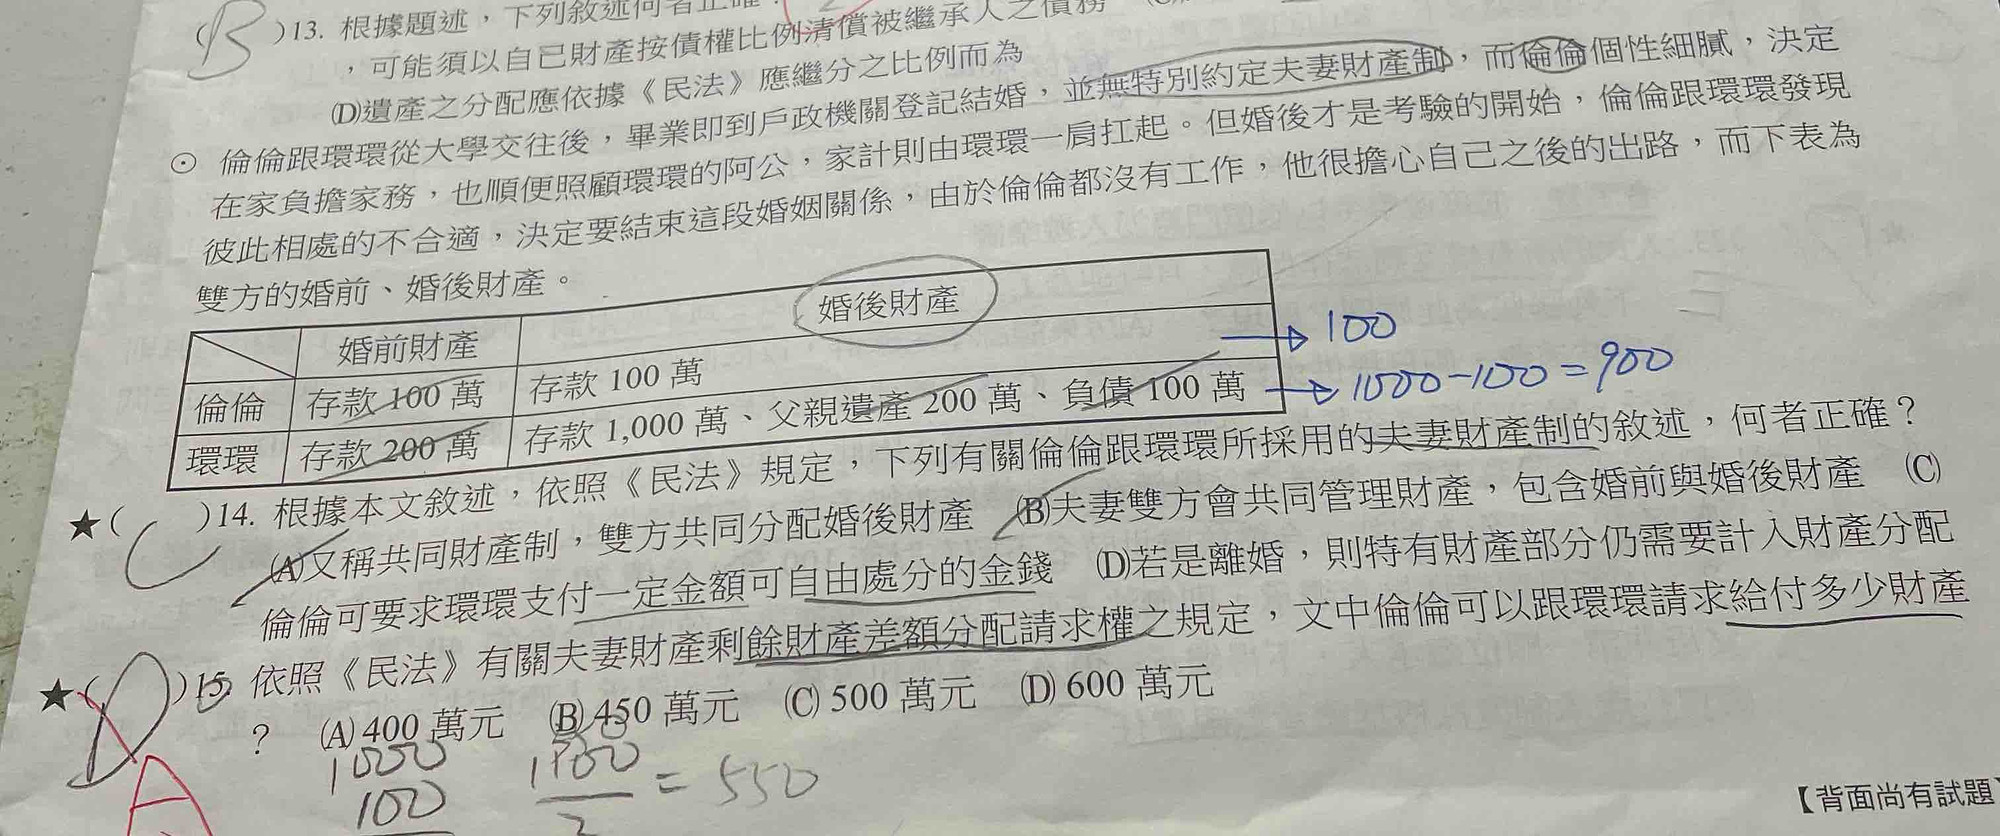 (B)13. 根據題述，下列敘述何者正確？
，可能須以自己財產按債權比例清償被繼承人之債務
(D)遺產之分配應依據《民法》應繼分之比例而為
⊙ 倫倫跟環環從大學交往後，畢業即到戶政機關登記結婚，並無特別約定夫妻財產制，而倫倫個性細膩，決定
在家負擔家務，也順便照顧環環的阿公，家計則由環環一肩扛起。但婚後才是考驗的開始，倫倫跟環環發現
彼此相處的不合適，決定要結束這段婚姻關係，由於倫倫都沒有工作，他很擔心自己之後的出路，而下表為
雙方的婚前、婚後財產。
婚前財產 婚後財產
倫倫 存款 100 萬 存款 100 萬 → 100
環環 存款 200 萬 存款 1,000 萬、父親遺產 200 萬、負債 100 萬 → 1000-100=900
★(C)14. 根據本文敘述，依照《民法》規定，下列有關倫倫跟環環所採用的夫妻財產制的敘述，何者正確？
(A)又稱共同財產制，雙方共同分配婚後財產 (B)夫妻雙方會共同管理財產，包含婚前與婚後財產 (C)
倫倫可要求環環支付一定金額可自由處分的金錢 (D)若是離婚，則特有財產部分仍需要計入財產分配
★(D)15. 依照《民法》有關夫妻財產剩餘財產差額分配請求權之規定，文中倫倫可以跟環環請求給付多少財產
？ (A) 400 萬元 (B) 450 萬元 (C) 500 萬元 (D) 600 萬元
A
1000
100
= 550
2
【背面尚有試題